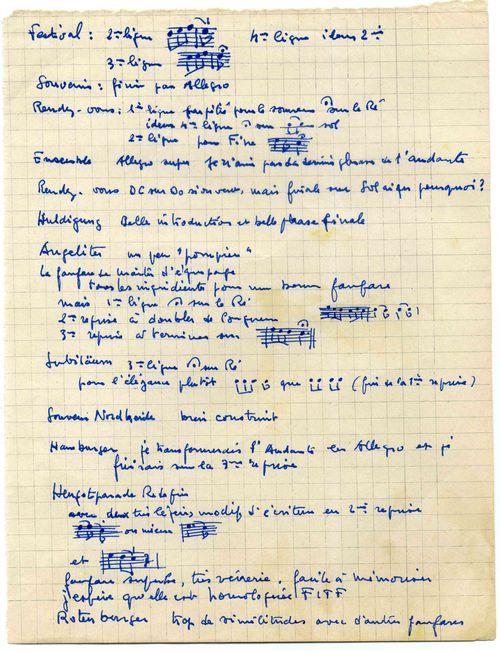 Festival : 2me ligne 4me ligne idem 2me
3me ligne
Souvenir : finir par Allegro
Rendez-vous : 1re ligne pour le sur le Ré
idem 4me ligne sur sol
2me ligne pour Fine
Ensemble Allegro super Je n'aime pas des phrases de l'andante
Rendez-vous DC sur Do si on veut, mais finale sur Sol aigu pourquoi ?
Huldigung Belle introduction et belle phrase finale
Angeliter un peu "pompier"
La fanfare du maître d'équipage
tous les ingrédients pour une bonne fanfare
mais 1re ligne sur le Ré
2me reprise à doubler de longueur
3me reprise à terminer sur
Jubiläum 3me ligne sur Ré
pour l'élégance plutôt que (fin de la 1re reprise)
Souvenir Nordheide bien construit
Hamburger je transformerais l'Andante en Allegro et je
finirais sur la 3me reprise
Hengstparade Redefin
avec deux très légères modif d'écriture en 2me reprise
ou mieux
et
fanfare superbe, très vénerie, facile à mémoriser
j'espère qu'elle est homologuée FITF
Rotenburger trop de similitudes avec d'autres fanfares